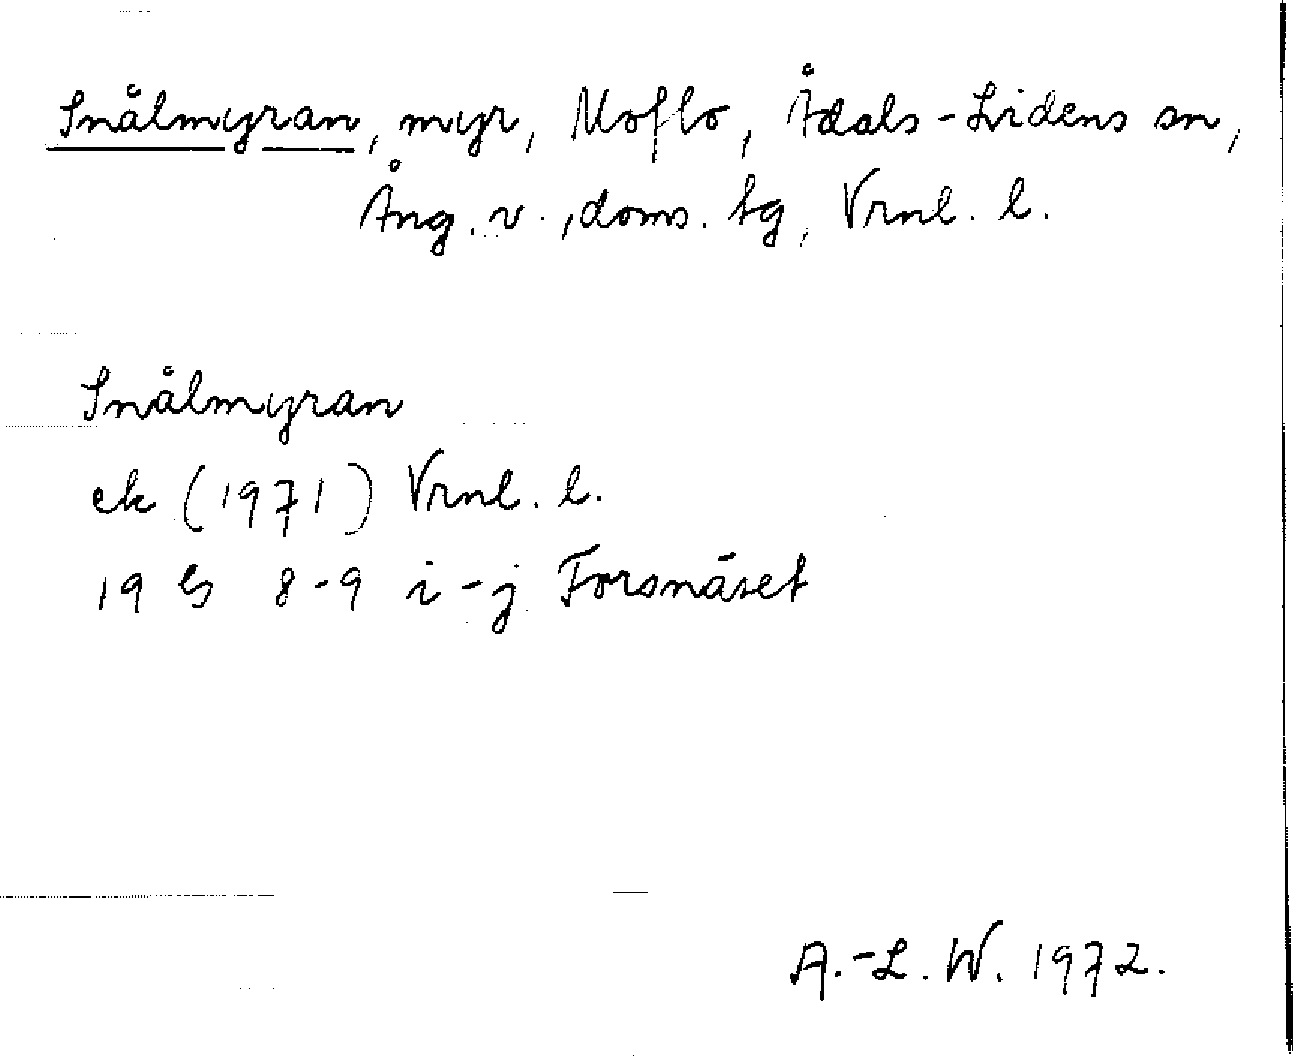 Snålmyran, myr, Moflo, Ådals-Lidens sn,
Ång. v., doms. tg, Vrnl. l.
Snålmyran
ek (1971) Vrnl. l.
19 G 8-9 i-j Forsnäset
A.-L. W. 1972.